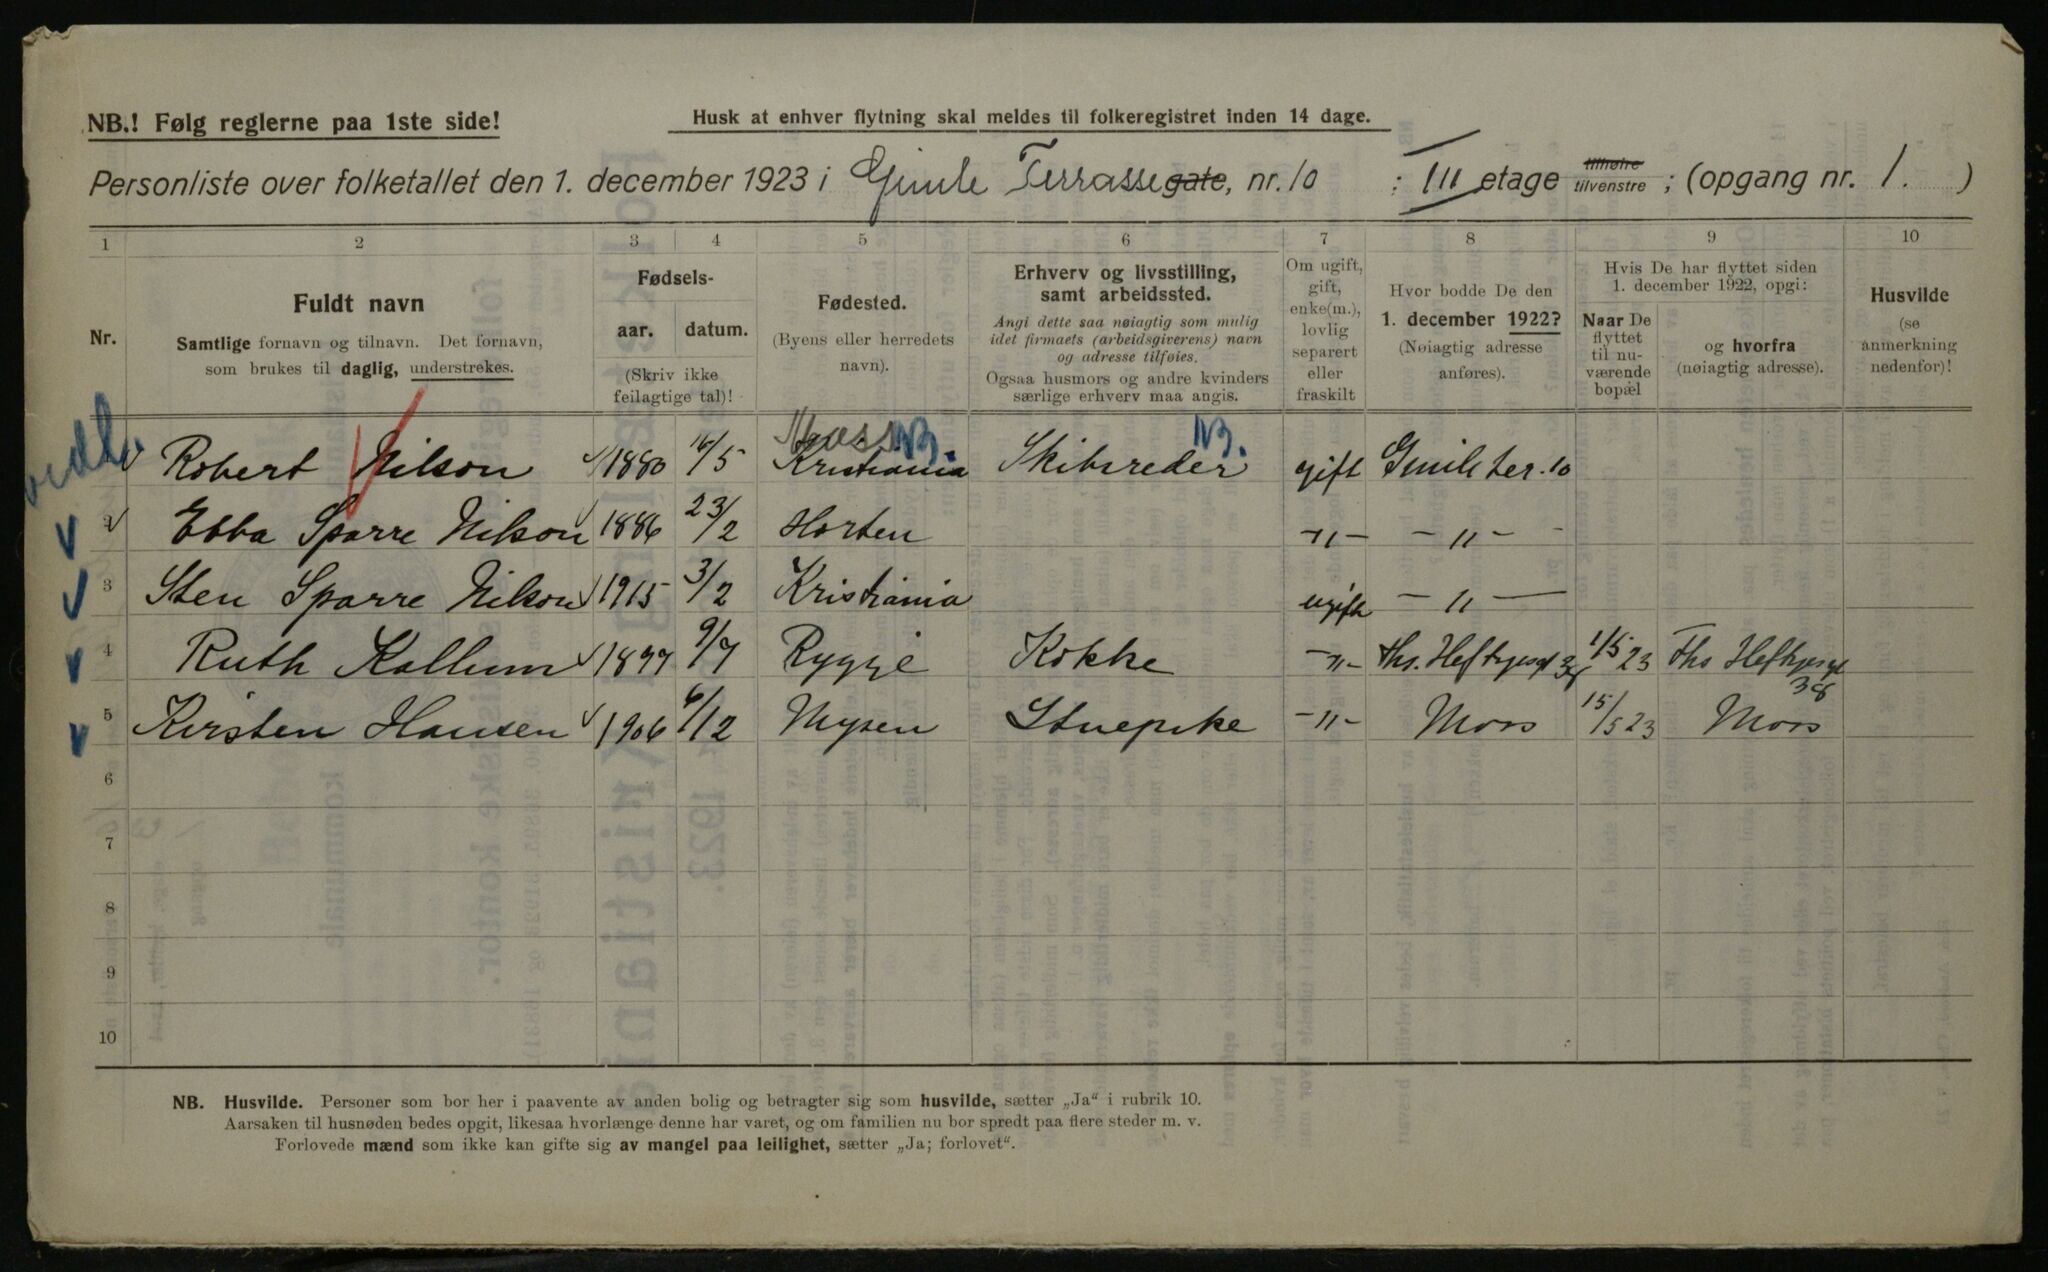 NB.! Følg reglerne paa 1ste side!
Husk at enhver flytning skal meldes til folkeregistret inden 14 dage.
Personliste over folketallet den 1. december 1923 i Gimle Terrasse gate, nr. 10 ; III etage tilhøire tilvenstre ; (opgang nr. 1. )
1 2 3 4 5 6 7 8 9 10
Nr.
Fuldt navn
Samtlige fornavn og tilnavn. Det fornavn,
som brukes til daglig, understrekes.
Fødsels-
aar. datum.
(Skriv ikke
feilagtige tal)!
Fødested.
(Byens eller herredets
navn).
Erhverv og livsstilling,
samt arbeidssted.
Angi dette saa nøiagtig som mulig
idet firmaets (arbeidsgiverens) navn
og adresse tilføies.
Ogsaa husmors og andre kvinders
særlige erhverv maa angis.
Om ugift,
gift,
enke(m.),
lovlig
separert
eller
fraskilt
Hvor bodde De den
1. december 1922?
(Nøiagtig adresse
anføres).
Hvis De har flyttet siden
1. december 1922, opgi:
Naar De
flyttet
til nu-
værende
bopæl
og hvorfra
(nøiagtig adresse).
Husvilde
(se
anmerkning
nedenfor)!
Moss NB. NB.
Robert Nilson 1880 16/5 Kristiania Skibsreder gift Gimle ter. 10
2 Ebba Sparre Nilson 1886 23/2 Horten -"- - " -
3 Sten Sparre Nilson 1915 3/2 Kristiania ugift - " -
4 Ruth Kallum 1897 9/7 Rygge Kokke -"- Ths. Heftyesgt 38 1/5 23 Ths Heftyesgt
38
5 Kirsten Hansen 1906 6/12 Mysen Stuepike -"- Moss 15/5 23 Moss
6
7
8
9
10
NB. Husvilde. Personer som bor her i paavente av anden bolig og betragter sig som husvilde, sætter „Ja" i rubrik 10.
Aarsaken til husnøden bedes opgit, likesaa hvorlænge denne har varet, og om familien nu bor spredt paa flere steder m. v.
Forlovede mænd som ikke kan gifte sig av mangel paa leilighet, sætter „Ja; forlovet".